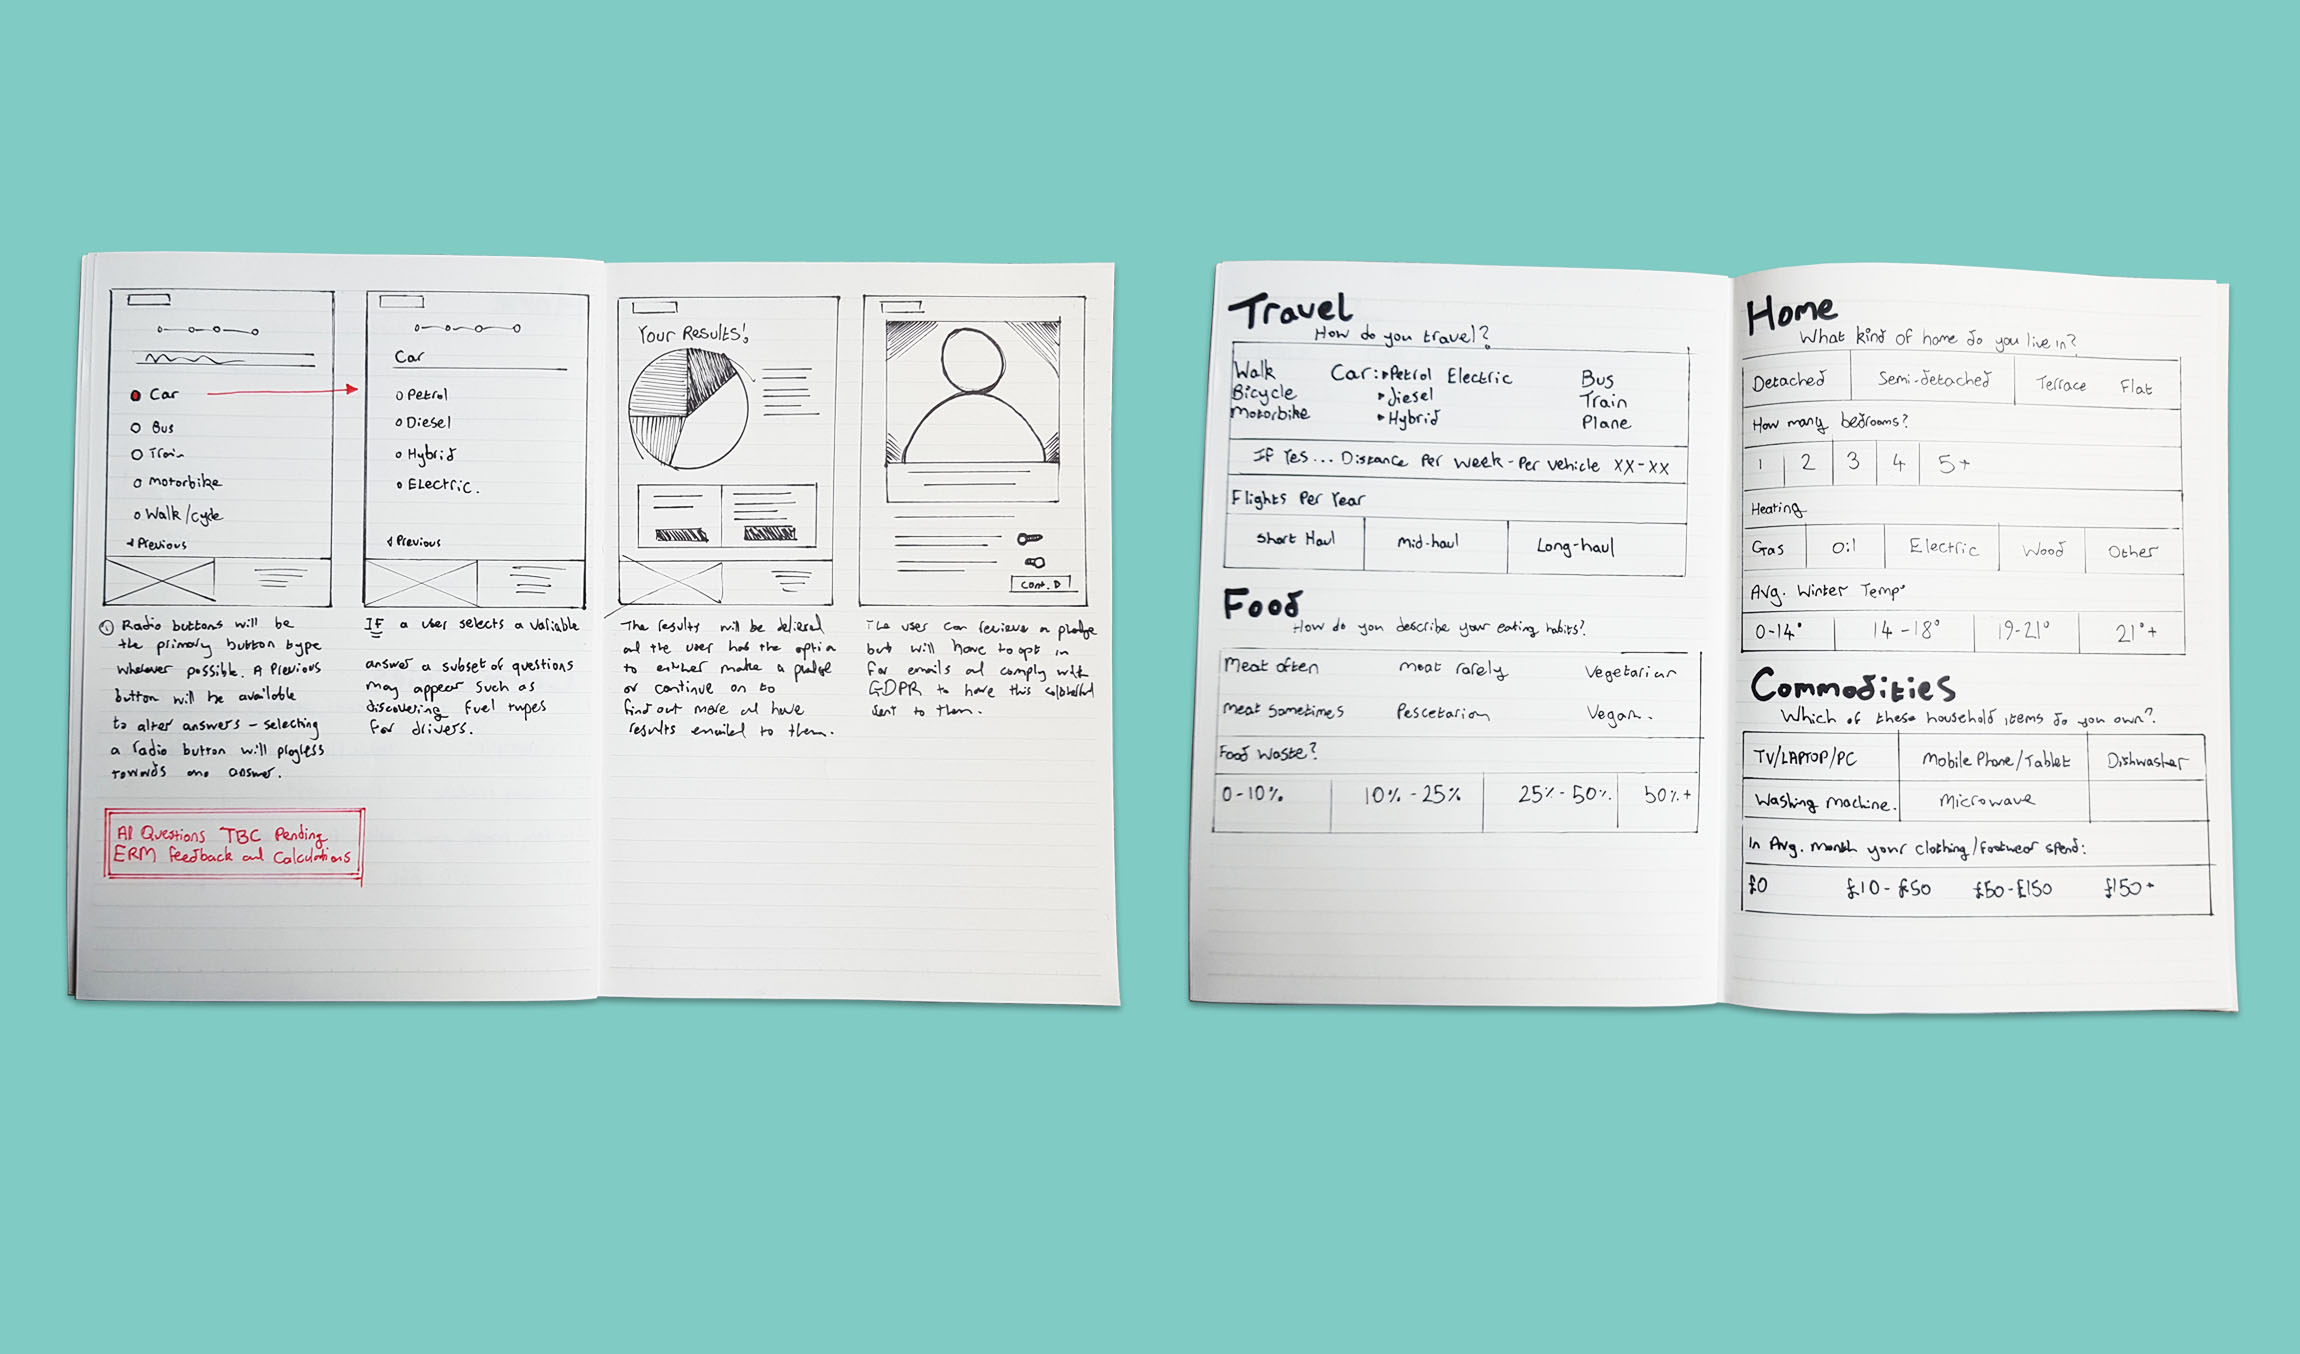 Car
Bus
Train
Motorbike
Walk/cycle
Previous
Car
Petrol
Diesel
Hybrid
Electric.
Previous
Your Results!
Cont. D
① Radio buttons will be
the primary button type
wherever possible. A Previous
button will be available
to alter answers - selecting
a radio button will progress
towards one answer.
All Questions TBC Pending
ERM feedback and Calculations
IF a user selects a variable
answer a subset of questions
may appear such as
discovering fuel types
for drivers.
The results will be delivered
and the user has the option
to either make a pledge
or continue on to
find out more and have
results emailed to them.
The user can review a pledge
but will have to opt in
for emails and comply with
GDPR to have this
sent to them.
Travel
How do you travel?
Walk
Bicycle
Motorbike
Car: Petrol Electric
Diesel
Hybrid
Bus
Train
Plane
If Yes... Distance Per Week - Per Vehicle XX-XX
Flights Per Year
Short Haul Mid-haul Long-haul
Food
How do you describe your eating habits?
Meat often Meat rarely Vegetarian
Meat sometimes Pescetarian Vegan.
Food Waste?
0-10% 10%-25% 25%-50% 50%+
Home
What kind of home do you live in?
Detached Semi-detached Terrace Flat
How many bedrooms?
1 2 3 4 5+
Heating
Gas Oil Electric Wood Other
Avg. Winter Temp°
0-14° 14-18° 19-21° 21°+
Commodities
Which of these household items do you own?
TV/LAPTOP/PC Mobile Phone/Tablet Dishwasher
Washing Machine. Microwave
In Avg. month your clothing/footwear spend:
£0 £10-£50 £50-£150 £150+